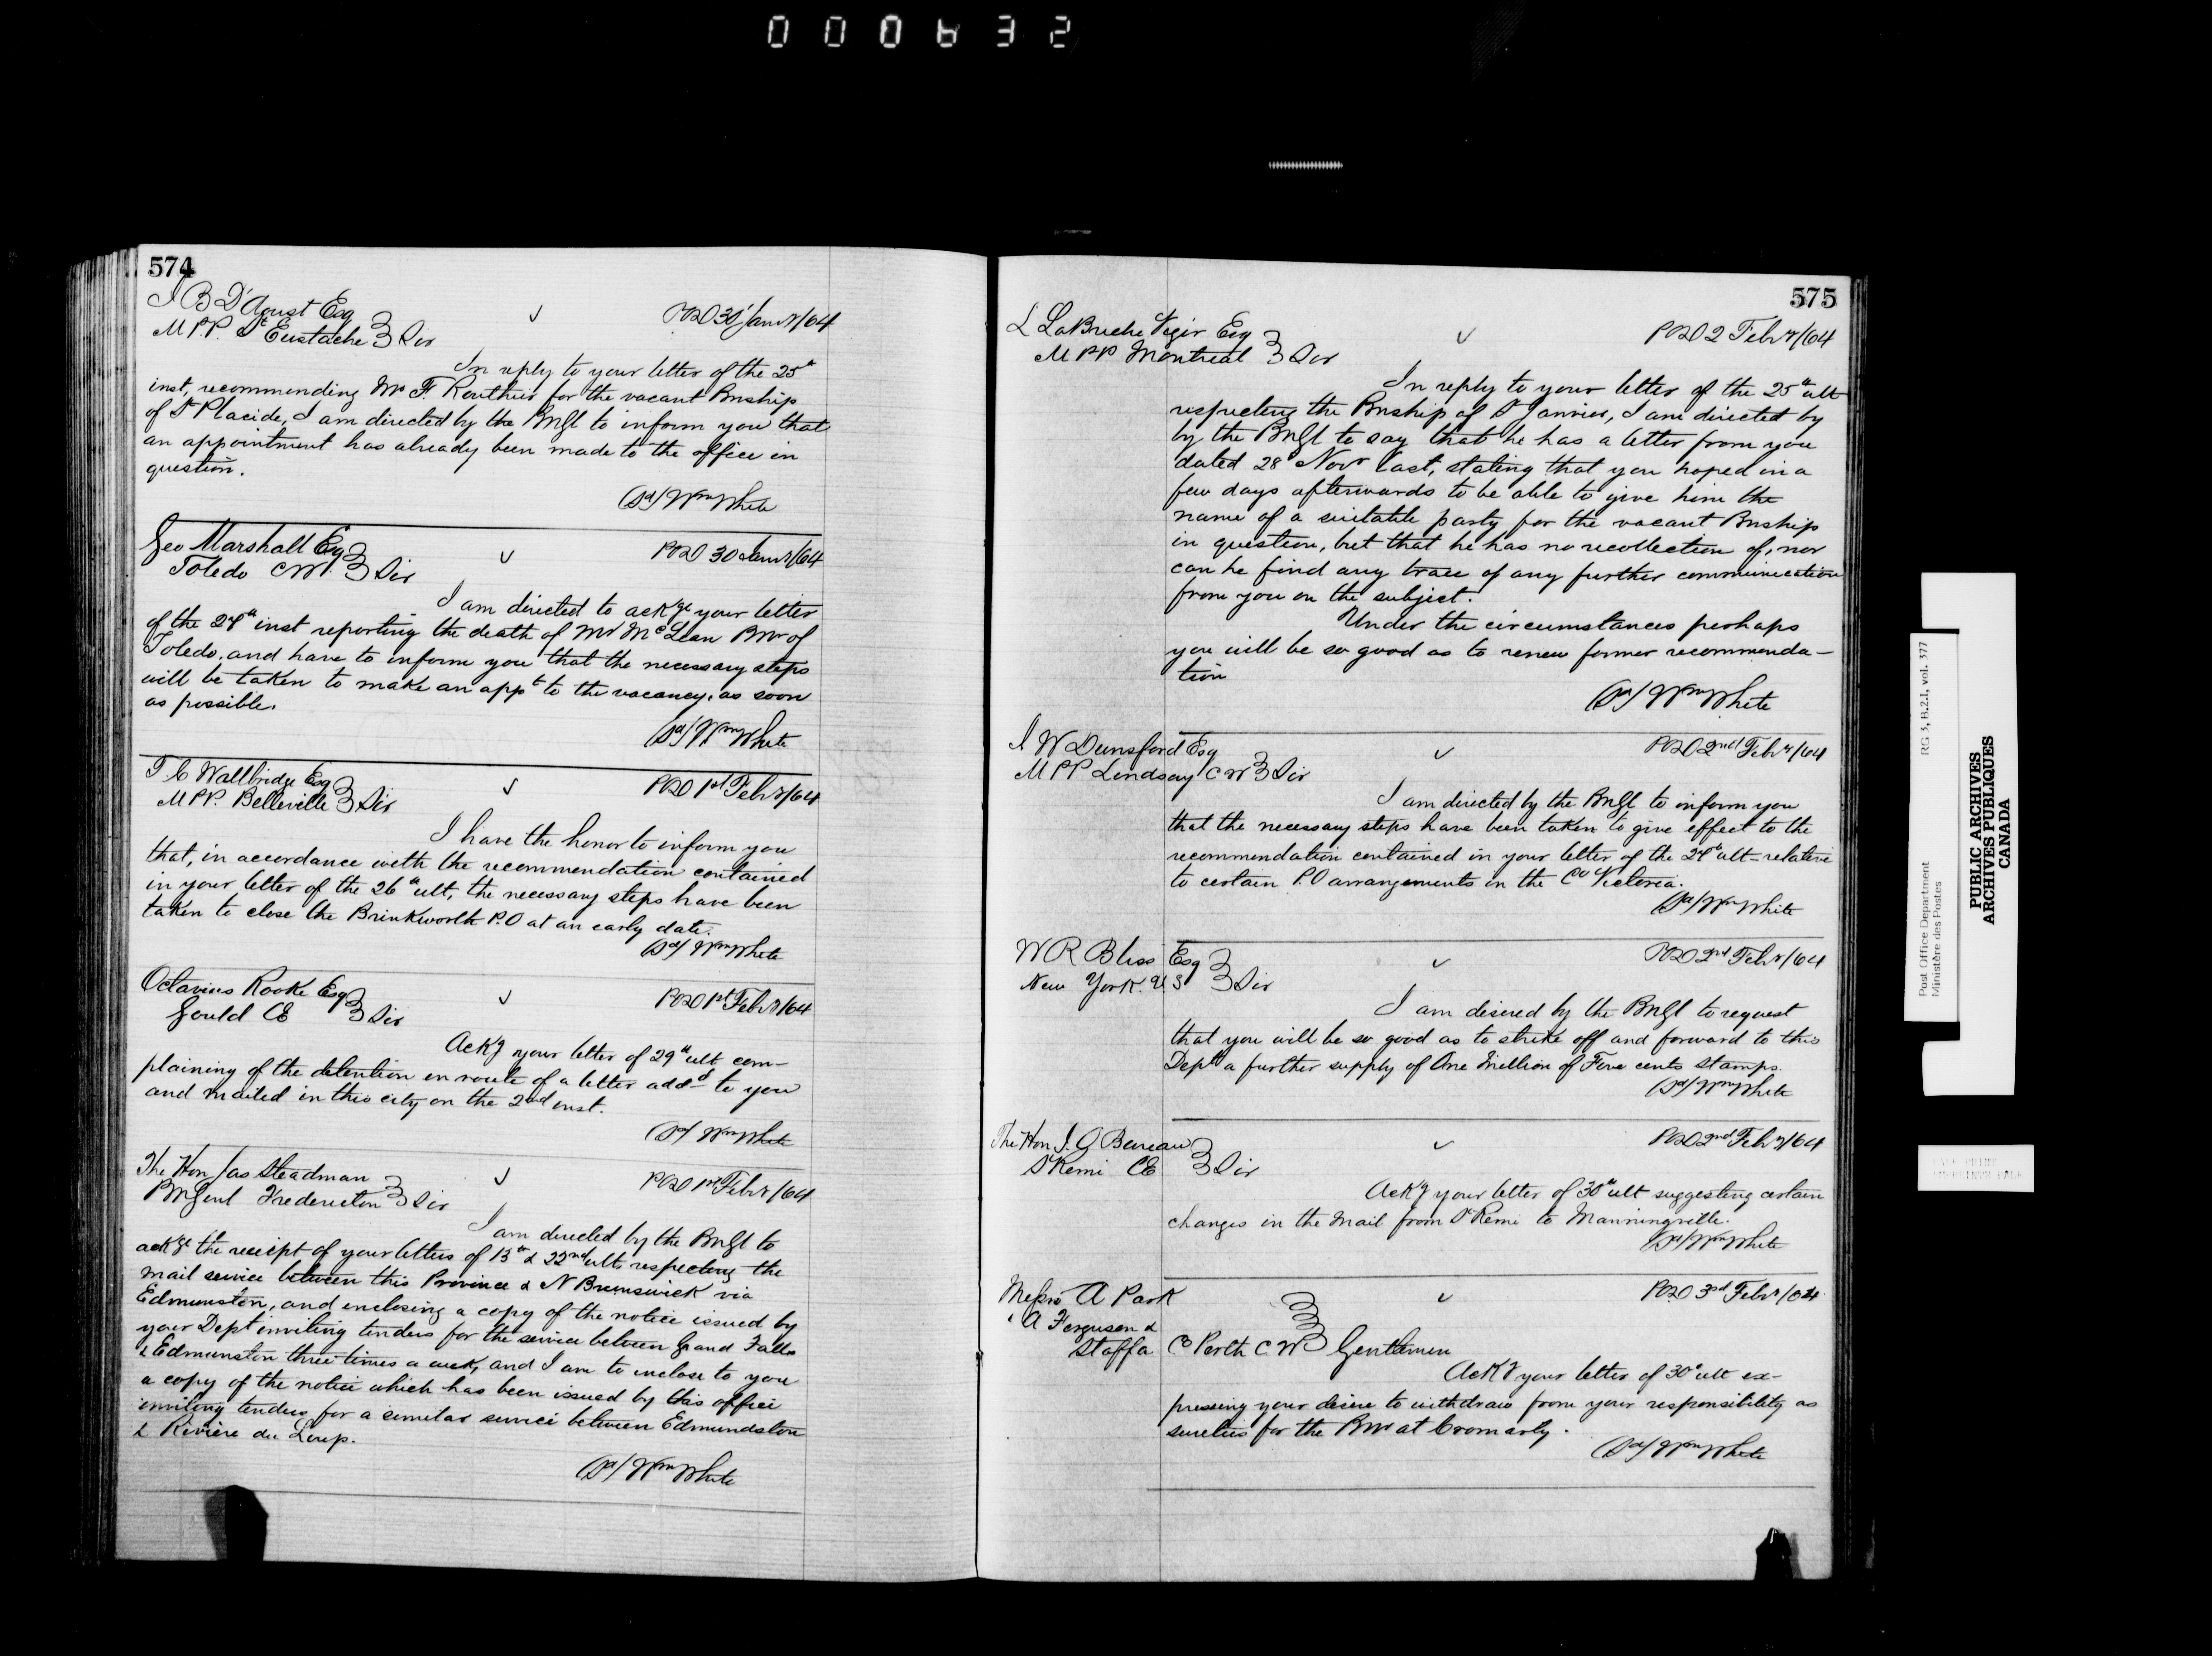 000632
574
J B D'Aoust Esq
M P.P. St Eustache } Sir
POD 30 Jany/64
In reply to your letter of the 25th
inst, recommending Mr F. Routhier for the vacant Pmship
of St Placide, I am directed by the PMGl to inform you that
an appointment has already been made to the office in
question.
(Sd/ Wm White
Geo Marshall Esq
Toledo CW. } Sir
POD 30 Jany/64
I am directed to ackge your letter
of the 27th inst reporting the death of Mr McLean PMr of
Toledo, and have to inform you that the necessary steps
will be taken to make an appt to the vacancy, as soon
as possible.
(Sd/ Wm White
T C Wallbridge Esq
M PP. Belleville } Sir
POD 1st Feby/64
I have the honor to inform you
that, in accordance with the recommendation contained
in your letter of the 26th ult, the necessary steps have been
taken to close the Brinkworth P.O at an early date.
(Sd/ Wm White
Octavius Rooke Esq
Gould CE } Sir
POD 1st Feby/64
Ackg your letter of 29th ult com-
plaining of the detention en route of a letter addd to you
and mailed in this city on the 2nd inst.
(Sd/ Wm White
The Hon Jas Steadman
PMGenl Fredericton } Sir
POD 1st Feby/64
I am directed by the PMGl to
ackge the receipt of your letters of 13th & 22nd ult, respecting the
mail service between this Province & N Brunswick via
Edmunston, and enclosing a copy of the notice issued by
your Dept inviting tenders for the service between Grand Falls
& Edmunston three times a week, and I am to inclose to you
a copy of the notice which has been issued by this office
inviting tenders for a similar service between Edmundston
& Rivière du Loup.
(Sd/ Wm White
575
L LaBruère Viger Esq
M PP Montreal } Sir
POD 2 Feby/64
In reply to your letter of the 25th ult
respecting the Pmship of St Janvier, I am directed by
by the PMGl to say that he has a letter from you
dated 28th Novr last, stating that you hoped in a
few days afterwards to be able to give him the
name of a suitable party for the vacant Pmship
in question, but that he has no recollection of, nor
can he find any trace of any further communication
from you on the subject.
Under the circumstances perhaps
you will be so good as to renew former recommenda-
tion
(Sd/ Wm White
J W Dunsford Esq
M PP Lindsay CW } Sir
POD 2nd Feby/64
I am directed by the PMGl to inform you
that the necessary steps have been taken to give effect to the
recommendation contained in your letter of the 27th ult - relative
to certain P.O arrangements in the Co Victoria.
(Sd/ Wm White
W R Bliss Esq
New York. U S } Sir
POD 2nd Feby/64
I am desired by the PMGl to request
that you will be so good as to strike off and forward to this
Dept a further supply of One Million of Five cents Stamps.
(Sd/ Wm White
The Hon J. O Bureau
St Remi CE } Sir
POD 2nd Feby/64
Ackg your letter of 30th ult suggesting certain
changes in the Mail from St Remi to Manningville.
(Sd/ Wm White
Messrs A Park
" A Ferguson &
Staffa Co Perth CW } Gentlemen
POD 3rd Feby/64
Ackg your letter of 30th ult ex-
pressing your desire to withdraw from your responsibility as
sureties for the PMr at Cromarty.
(Sd/ Wm White
Post Office Department RG 3, B.2.1, vol. 377
Ministère des Postes
PUBLIC ARCHIVES
ARCHIVES PUBLIQUES
CANADA